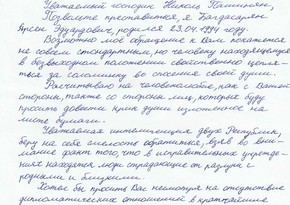 Уважаемый господин Никол Пашинян,
Позвольте представиться, я Багдасарян
Арсен Эдуардович, родился 23.04.1994 году.
Возможно моё обращение к Вам покажется
не совсем стандартным, но человеку находящемуся
в безвыходном положении свойственно цепля-
ться за соломинку во спасения своей души.
Рассчитываю на человеколюбие, как с Вашей
стороны, также со стороны лиц, которые
просто довести крик души изложенное на
листе бумаги.
Уважаемая интеллигенция двух Республик,
беру на себя смелость обратиться, взяв во вни-
мание факт того, что в исправительных учрежде-
ниях находятся люди страдающие от разлуки с
родными и близкими.
Хотел бы просить Вас несмотря на отсутствие
дипломатических отношений в кратчайшие